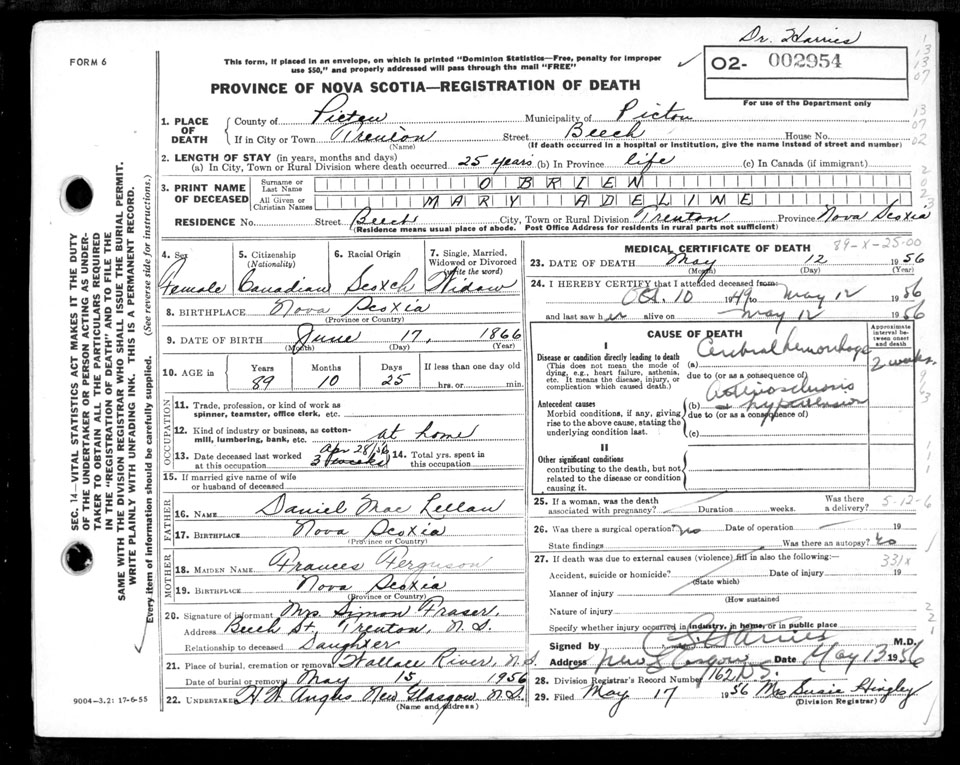 Dr. Harries
FORM 6
This form, if placed in an envelope, on which is printed "Dominion Statistics—Free, penalty for improper
use $50," and properly addressed will pass through the mail "FREE"
O2- 002954
For use of the Department only
PROVINCE OF NOVA SCOTIA—REGISTRATION OF DEATH
1. PLACE OF DEATH
County of Pictou Municipality of Pictou
If in City or Town Trenton Street Beech House No.
(Name) (If death occurred in a hospital or institution, give the name instead of street and number)
2. LENGTH OF STAY (in years, months and days)
(a) In City, Town or Rural Division where death occurred 25 years (b) In Province life (c) In Canada (if immigrant)
3. PRINT NAME OF DECEASED
Surname or Last Name OBRIEN
All Given or Christian Names MARY ADELINE
RESIDENCE No. Street Beech City, Town or Rural Division Trenton Province Nova Scotia
(Residence means usual place of abode. Post Office Address for residents in rural parts not sufficient)
4. Sex 5. Citizenship (Nationality) 6. Racial Origin 7. Single, Married, Widowed or Divorced (write the word)
Female Canadian Scotch Widow
8. BIRTHPLACE Nova Scotia
(Province or Country)
9. DATE OF BIRTH June 17, 1866
(Month) (Day) (Year)
10. AGE in Years Months Days If less than one day old
89 10 25 hrs. or min.
OCCUPATION
11. Trade, profession, or kind of work as
spinner, teamster, office clerk, etc.
12. Kind of industry or business, as cotton-
mill, lumbering, bank, etc. at home
13. Date deceased last worked at this occupation Apr 28/56 3 weeks 14. Total yrs. spent in this occupation
15. If married give name of wife
or husband of deceased
FATHER
16. NAME Daniel Mac Lellan
17. BIRTHPLACE Nova Scotia
(Province or Country)
MOTHER
18. MAIDEN NAME Frances Ferguson
19. BIRTHPLACE Nova Scotia
(Province or Country)
20. Signature of informant Mrs. Simon Fraser
Address Beech St, Trenton, N.S.
Relationship to deceased Daughter
21. Place of burial, cremation or removal Wallace River, N.S.
Date of burial or removal May 15, 1956
22. UNDERTAKER H. W. Angus New Glasgow N.S.
(Name and address)
MEDICAL CERTIFICATE OF DEATH
89-X-25-00
23. DATE OF DEATH May 12 1956
(Month) (Day) (Year)
24. I HEREBY CERTIFY that I attended deceased from:
Oct. 10 1949 to May 12 1956
and last saw her alive on May 12 1956
CAUSE OF DEATH
Approximate interval between onset and death
I
Disease or condition directly leading to death
(This does not mean the mode of
dying, e.g., heart failure, asthenia,
etc. It means the disease, injury, or
complication which caused death.)
(a) Cerebral hemorrhage 2 weeks
due to (or as a consequence of)
Antecedent causes
Morbid conditions, if any, giving
rise to the above cause, stating the
underlying condition last.
(b) Arteriosclerosis
& hypertension
due to (or as a consequence of)
(c)
II
Other significant conditions
contributing to the death, but not
related to the disease or condition
causing it.
25. If a woman, was the death
associated with pregnancy? Duration weeks. Was there a delivery?
5-12-6
26. Was there a surgical operation? no Date of operation 19
State findings Was there an autopsy? no
27. If death was due to external causes (violence) fill in also the following:
331X
Accident, suicide or homicide? Date of injury 19
(State which)
Manner of injury
(How sustained)
Nature of injury
Specify whether injury occurred in industry, in home, or in public place
Signed by Harries M.D.
Address New Glasgow N.S. Date May 13 1956
28. Division Registrar's Record Number 162
29. Filed May 17 1956 Mrs Susie Hingley
(Division Registrar)
SEC. 14—VITAL STATISTICS ACT MAKES IT THE DUTY
OF THE UNDERTAKER OR PERSON ACTING AS UNDER-
TAKER TO OBTAIN ALL THE PARTICULARS REQUIRED
IN THE "REGISTRATION OF DEATH" AND TO FILE THE
SAME WITH THE DIVISION REGISTRAR WHO SHALL ISSUE THE BURIAL PERMIT.
WRITE PLAINLY WITH UNFADING INK. THIS IS A PERMANENT RECORD.
Every item of information should be carefully supplied. (See reverse side for instructions.)
9004-3.21 17-6-55